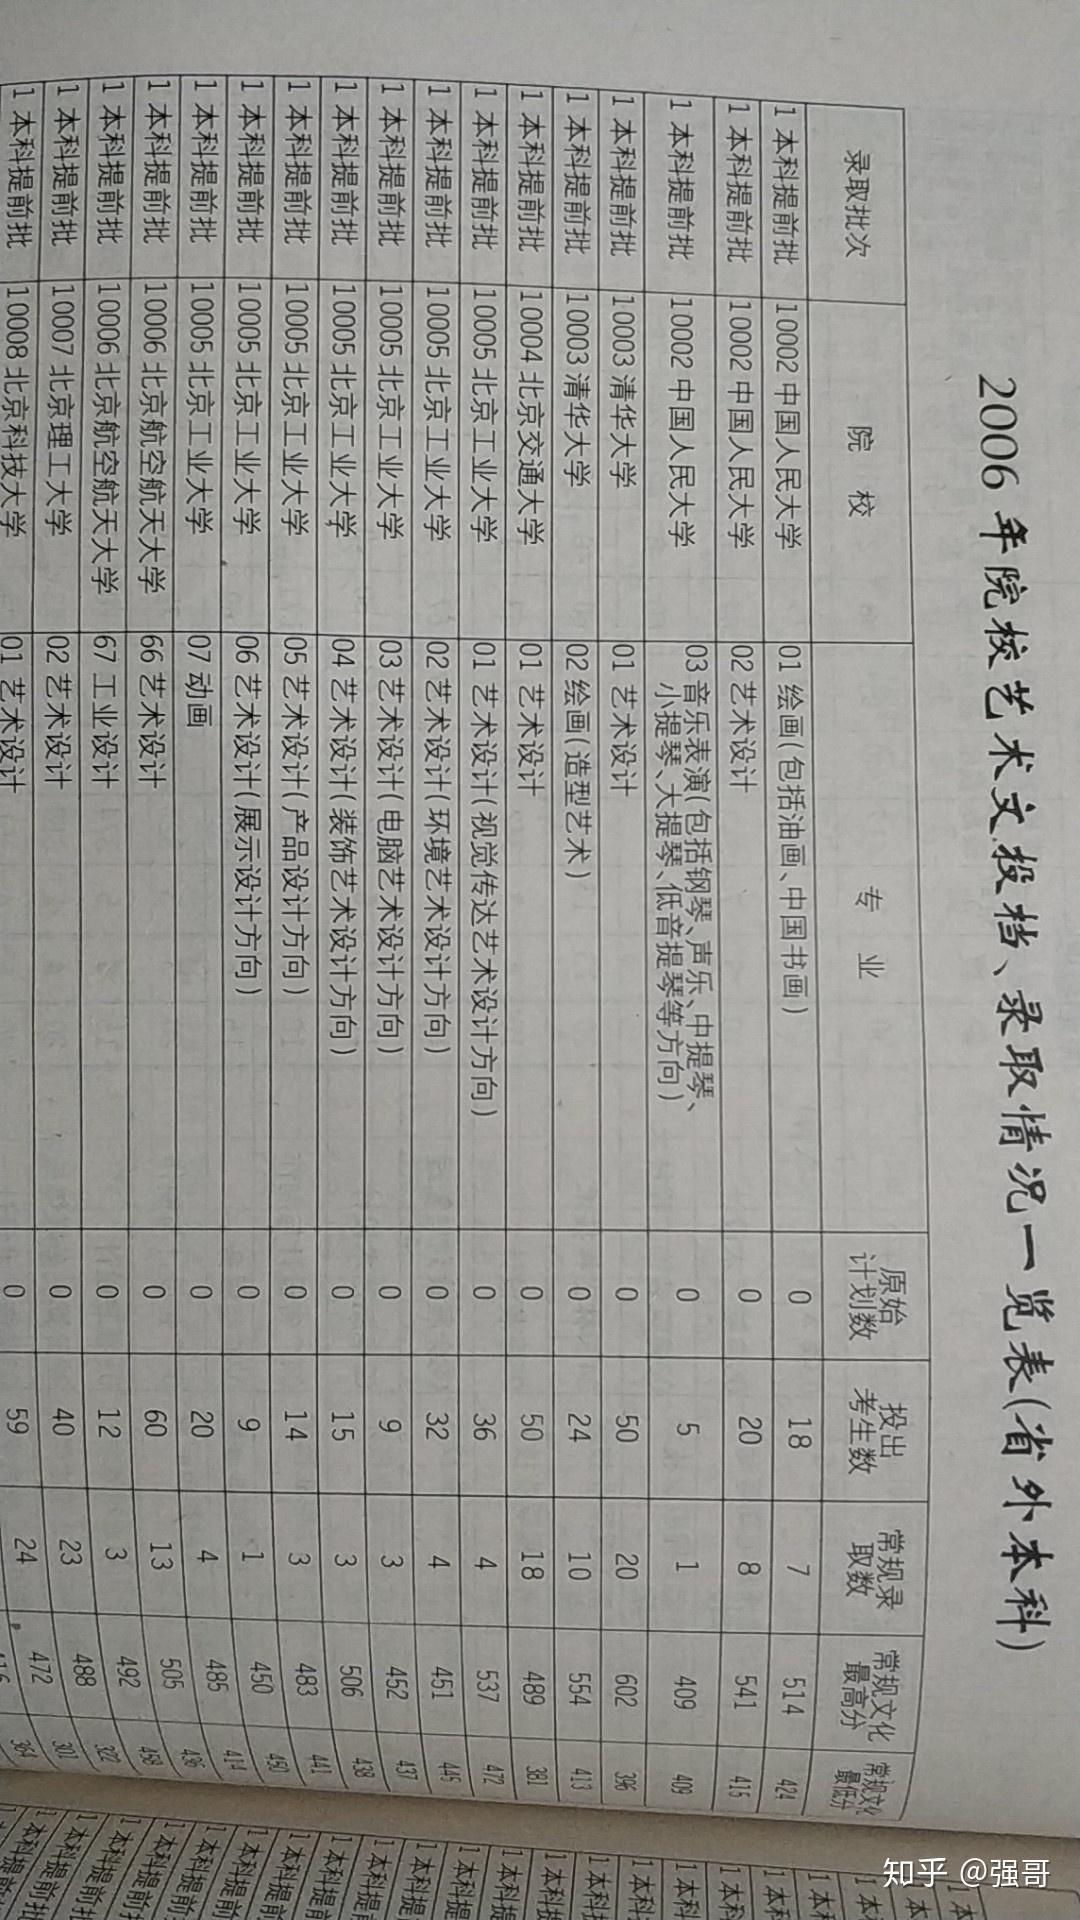 2006 年院校艺术文投档、录取情况一览表(省外本科)
录取批次 院 校 专 业 原始计划数 投出考生数 常规录取数 常规文化最高分 常规文化最低分
1 本科提前批 10002 中国人民大学 01 绘画(包括油画、中国书画) 0 18 7 514 424
1 本科提前批 10002 中国人民大学 02 艺术设计 0 20 8 541 415
1 本科提前批 10002 中国人民大学 03 音乐表演(包括钢琴、声乐、中提琴、小提琴、大提琴、低音提琴等方向) 0 5 1 409 409
1 本科提前批 10003 清华大学 01 艺术设计 0 50 20 602 396
1 本科提前批 10003 清华大学 02 绘画(造型艺术) 0 24 10 554 413
1 本科提前批 10004 北京交通大学 01 艺术设计 0 50 18 489 381
1 本科提前批 10005 北京工业大学 01 艺术设计(视觉传达艺术设计方向) 0 36 4 537 472
1 本科提前批 10005 北京工业大学 02 艺术设计(环境艺术设计方向) 0 32 4 451 445
1 本科提前批 10005 北京工业大学 03 艺术设计(电脑艺术设计方向) 0 9 3 452 437
1 本科提前批 10005 北京工业大学 04 艺术设计(装饰艺术设计方向) 0 15 3 506 438
1 本科提前批 10005 北京工业大学 05 艺术设计(产品设计方向) 0 14 3 483 441
1 本科提前批 10005 北京工业大学 06 艺术设计(展示设计方向) 0 9 1 450 450
1 本科提前批 10005 北京工业大学 07 动画 0 20 4 485 414
1 本科提前批 10006 北京航空航天大学 66 艺术设计 0 60 13 505 436
1 本科提前批 10006 北京航空航天大学 67 工业设计 0 12 3 492 458
1 本科提前批 10007 北京理工大学 02 艺术设计 0 40 23 488 322
1 本科提前批 10008 北京科技大学 01 艺术设计 0 59 24 472 301
364
1 本
1 本
1 本
1 本科
1 本科
1 本科
1 本科
1 本科提
1 本科提
1 本科提
1 本科提前
1 本科提前
1 本科提前
1 本科提前
1 本科提前
1 本科提前
1 本科提前批
1 本科提前批
1 本科提前批
知乎 @强哥